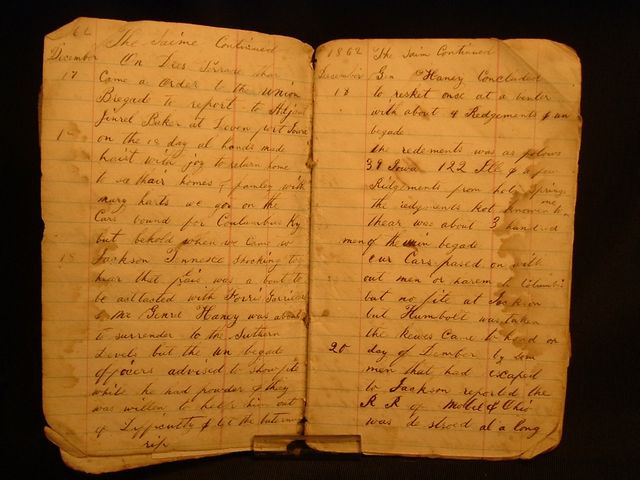 62 The Saime Continued
December On Dees Tirrade thar
17 Came a Order to the Union
Bregad to report to Adjan
Jinrel Baker at Leven port Iowa
1 on the 18 day al hands made
haist with joy to return home
to se thair homes & famley with
mary harts we got on the
Cars bound for Coulumbus Ky
but behold when we came to
18 Jackson Tinnesee shocking to
hear that plaic was a bout to
be attacted with Forris Gorrilars
& Mc Genrel Haney was about
to surrender to the Suthern
Devels but the un begade
officers advised to show fite
while he had powder & they
was willen to help him out
of Difficutty & let the buter
rip
1862 The Saim Continued
December Gen Haney Concluded
18 to resket onse at a venter
with about 4 Redgements & un
begade
the redements was as folows
39 Iowa 122 Ill & a few
Ridgements from holy Springs
the redgments not known to me
thear was about 3 hundred
men of the un begade
our Cars pased on with
out men or harem to Columbus
but no fite at Jackson
but Humbolt was taken
the Kewes Came to head on
20 day of Dember by som
men that had escaped
to Jackson reported the
R R of Mobile & Ohio
was de stroed al a long